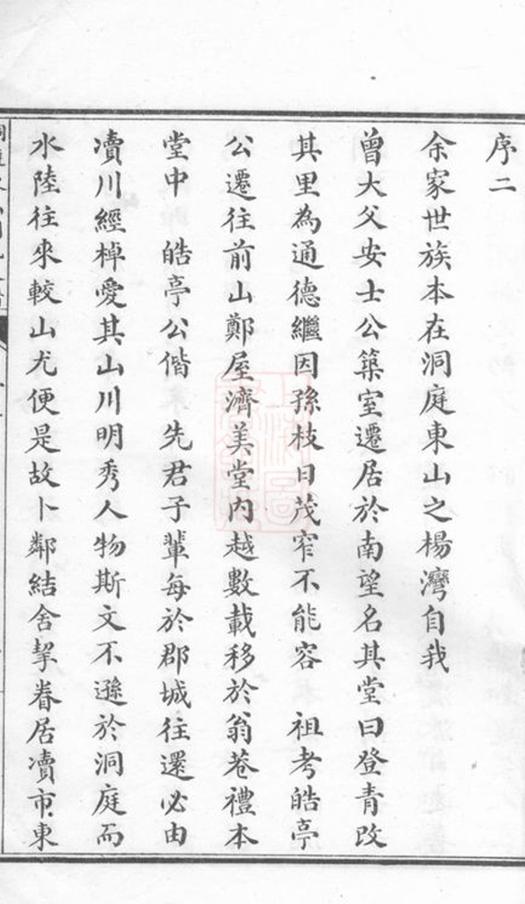 序二
余家世族本在洞庭東山之楊灣自我
曾大父安士公築室遷居於南望名其堂曰登青改
其里為通德繼因孫枝日茂窄不能容　祖考皓亭
公遷往前山鄭屋濟美堂內越數載移於翁巷禮本
堂中　皓亭公偕　先君子輩每於郡城往還必由
瀆川經棹愛其山川明秀人物斯文不遜於洞庭而
水陸往來較山尤便是故卜鄰結舍挈眷居瀆市東